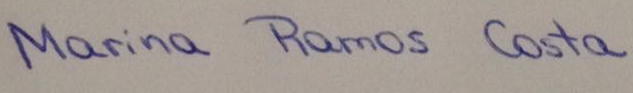 Marina Ramos Costa